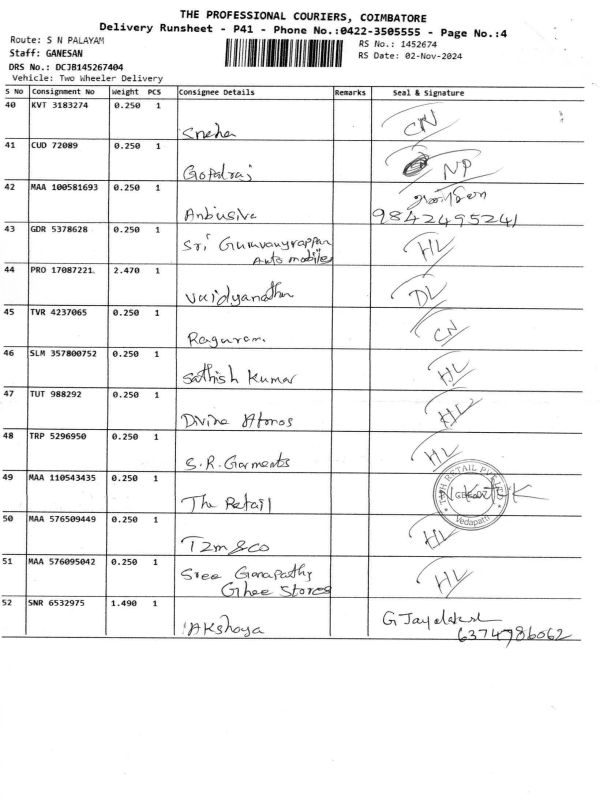 THE PROFESSIONAL COURIERS, COIMBATORE
Delivery Runsheet - P41 - Phone No.:0422-3505555 - Page No.:4
Route: S N PALAYAM
RS No.: 1452674
Staff: GANESAN
RS Date: 02-Nov-2024
DRS No.: DCJB145267404
Vehicle: Two Wheeler Delivery
S No Consignment No Weight PCS Consignee Details Remarks Seal & Signature
40 KVT 3183274 0.250 1
Sneha CN
41 CUD 72089 0.250 1
Gopalraj NP
42 MAA 100581693 0.250 1
Anbusiva 9842495241
43 GDR 5378628 0.250 1
Sri Guruvayurappan HL
Auto mobiles
44 PRO 17087221 2.470 1
Vaidyanathan DL
45 TVR 4237065 0.250 1
Raguram CN
46 SLM 357800752 0.250 1
Sathish Kumar HL
47 TUT 988292 0.250 1
Divine HL
48 TRP 5296950 0.250 1
S.R. Garments HL
49 MAA 110543435 0.250 1
The Retail RETAIL Vedapatti
50 MAA 576509449 0.250 1
Tzm & co HL
51 MAA 576095042 0.250 1
Sree Ganapathy HL
Ghee Stores
52 SNR 6532975 1.490 1
Akshaya G Jayalakshmi
6374786062